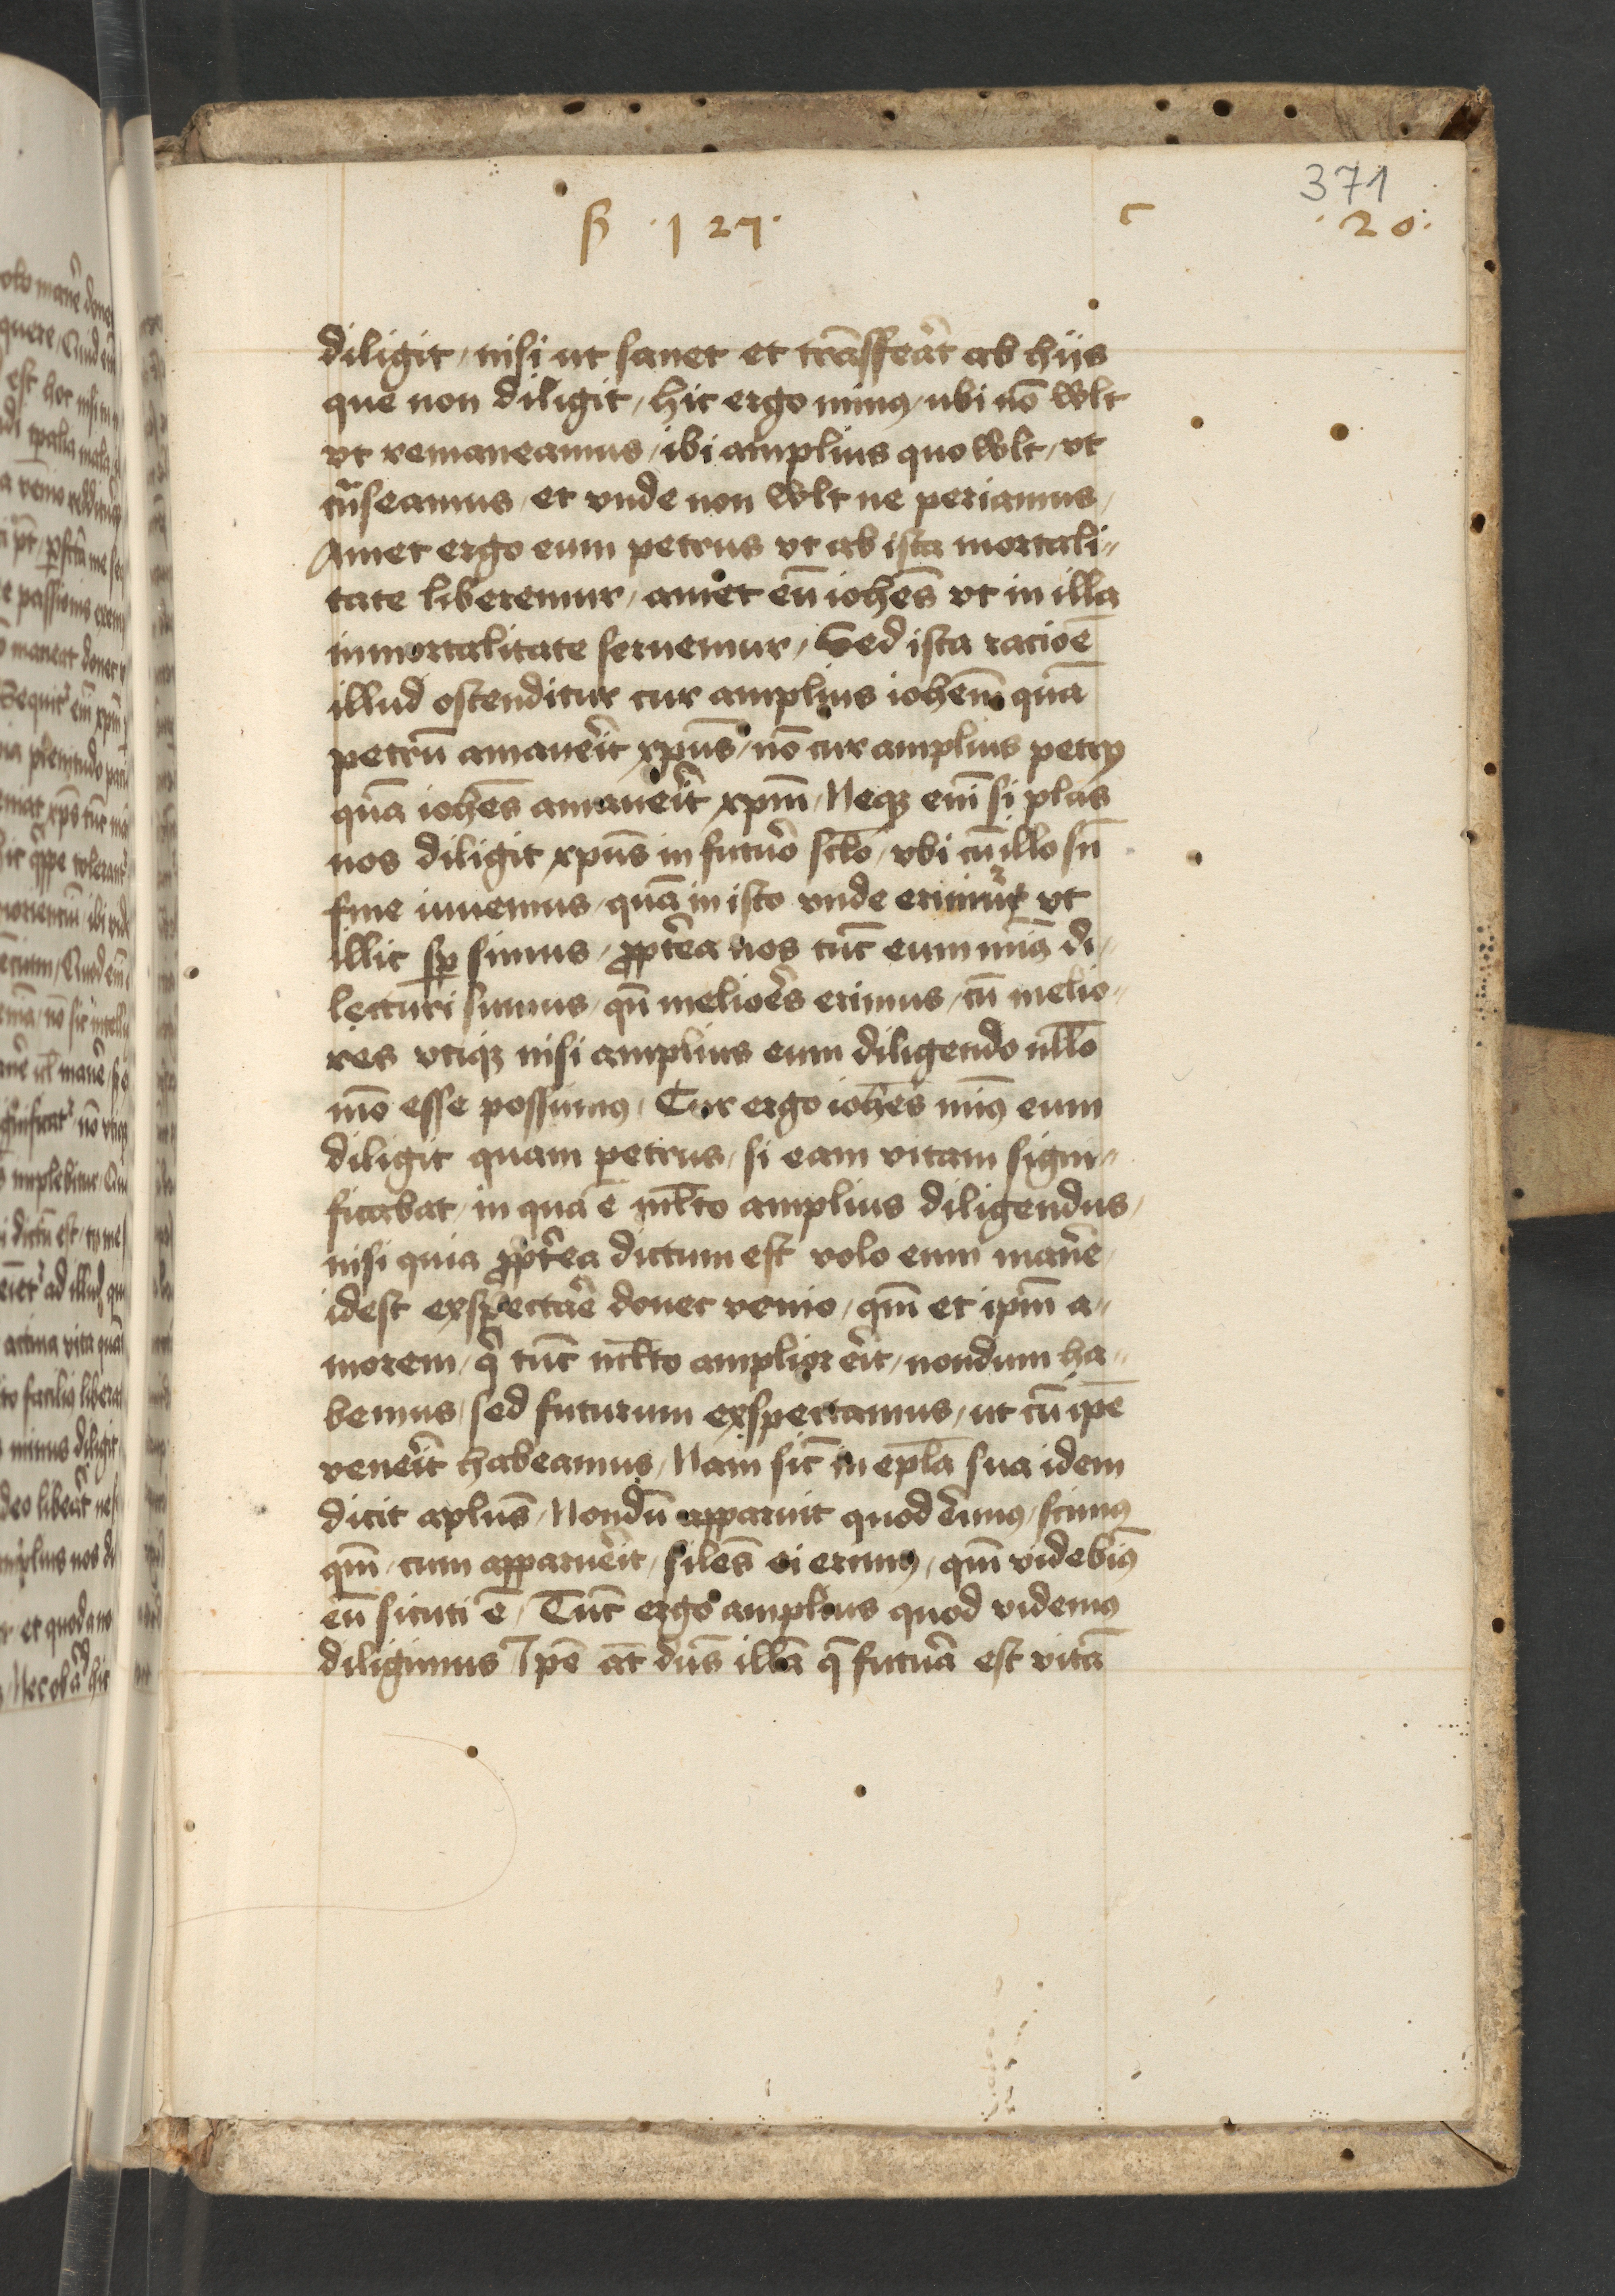 371
ẞ ·127· c ·20·
diligit / nisi ut sanet et trāsffeat̄ ab hijs
que non diligit / hic ergo minꝰ / ubi nō wlt
vt remaneamus / ibi amplius quo wlt / vt
tñseamus / et vnde non wlt ne periamus /
Amet ergo eum petrus vt ab ista mortali⸗
tate liberemur / amet eū ioħes vt in illa
inmortalitate seruemur / Sed ista racioē
illud ostenditur cur amplius ioħem quā
petrū amauēit xp̄us / nō cur amplius petrꝰ
quā ioħes amauēit xp̄m / Neqꝫ enī si plus
nos diligit xp̄us in futuō sc̄lo / vbi cū illo sn̄
fine iuuemus / quā in isto vnde erimur vt
illic sꝑ simus / ꝓpterea nos tūc eum minꝰ di⸗
lecturi sumus / qn̄ melioēs erimus / cū melio⸗
res vtiqꝫ nisi amplius eum diligendo nll̄o
mō esse possumꝰ / Cur ergo ioħes minꝰ eum
diligit quam petrus / si eam vitam signi⸗
ficabat / in qua ē ml̄to amplius diligendus /
nisi quia ꝓpt̄ea dictum est volo eum manēe
idest exspectāe donec venio / qm̄ et ip̄m a⸗
morem / q̄ tūc ml̄to amplior eīt / nondum ha⸗
bemus / sed futurum exspectamus / ut cū ip̄e
veneīt habeamus / Nam sic̄ in ep̄la sua idem
dicit ap̄lus / Nondū apparuit quod eīmꝰ / scimꝰ
qm̄ / cum apparuēit / sil̄es ei erimꝰ / qm̄ videbimꝰ
eū sicuti ē / Tūc ergo amplius quod videmꝰ
diligimus Ip̄e āt dn̄s illā q̄ futuā est vitā